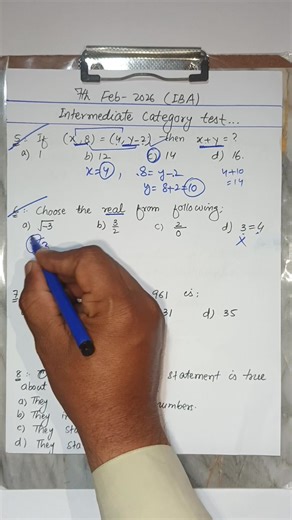 7th Feb-2026 (IBA)
Intermediate Category test...
5:- If (x,8) = (4,y-2), then x+y=?
a) 1 b) 12 c) 14 d) 16.
x=4, 8=y-2 4+10
y=8+2=10 =14
6:- Choose the real from following:
a) √-3 b) 3/2 c) 2/0 d) 3=4
x
961 is:
31 d) 35
8:- statement is true
about
a) They numbers.
b) They
c) They
d) They